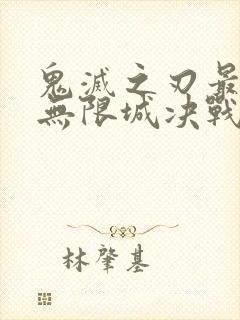 鬼滅之刃最
無限城決戰
林肇基